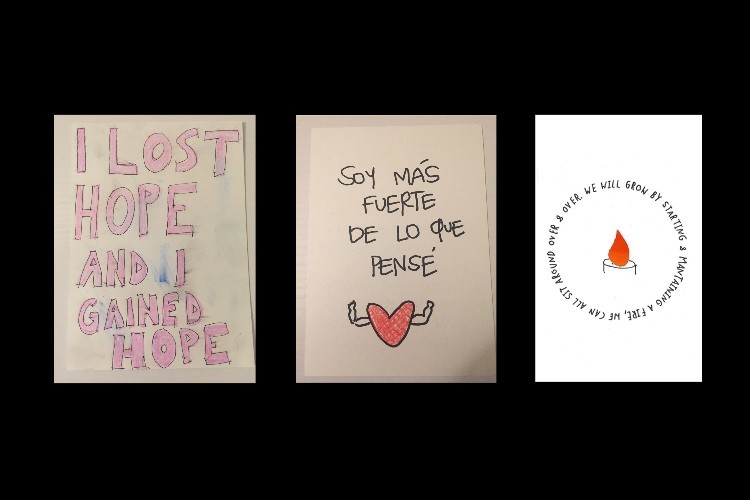 I LOST
HOPE
AND I
GAINED
HOPE
SOY MÁS
FUERTE
DE LO QUE
PENSÉ
WE WILL GROW BY STARTING & MAINTAINING A FIRE, WE CAN ALL SIT AROUND OVER & OVER.